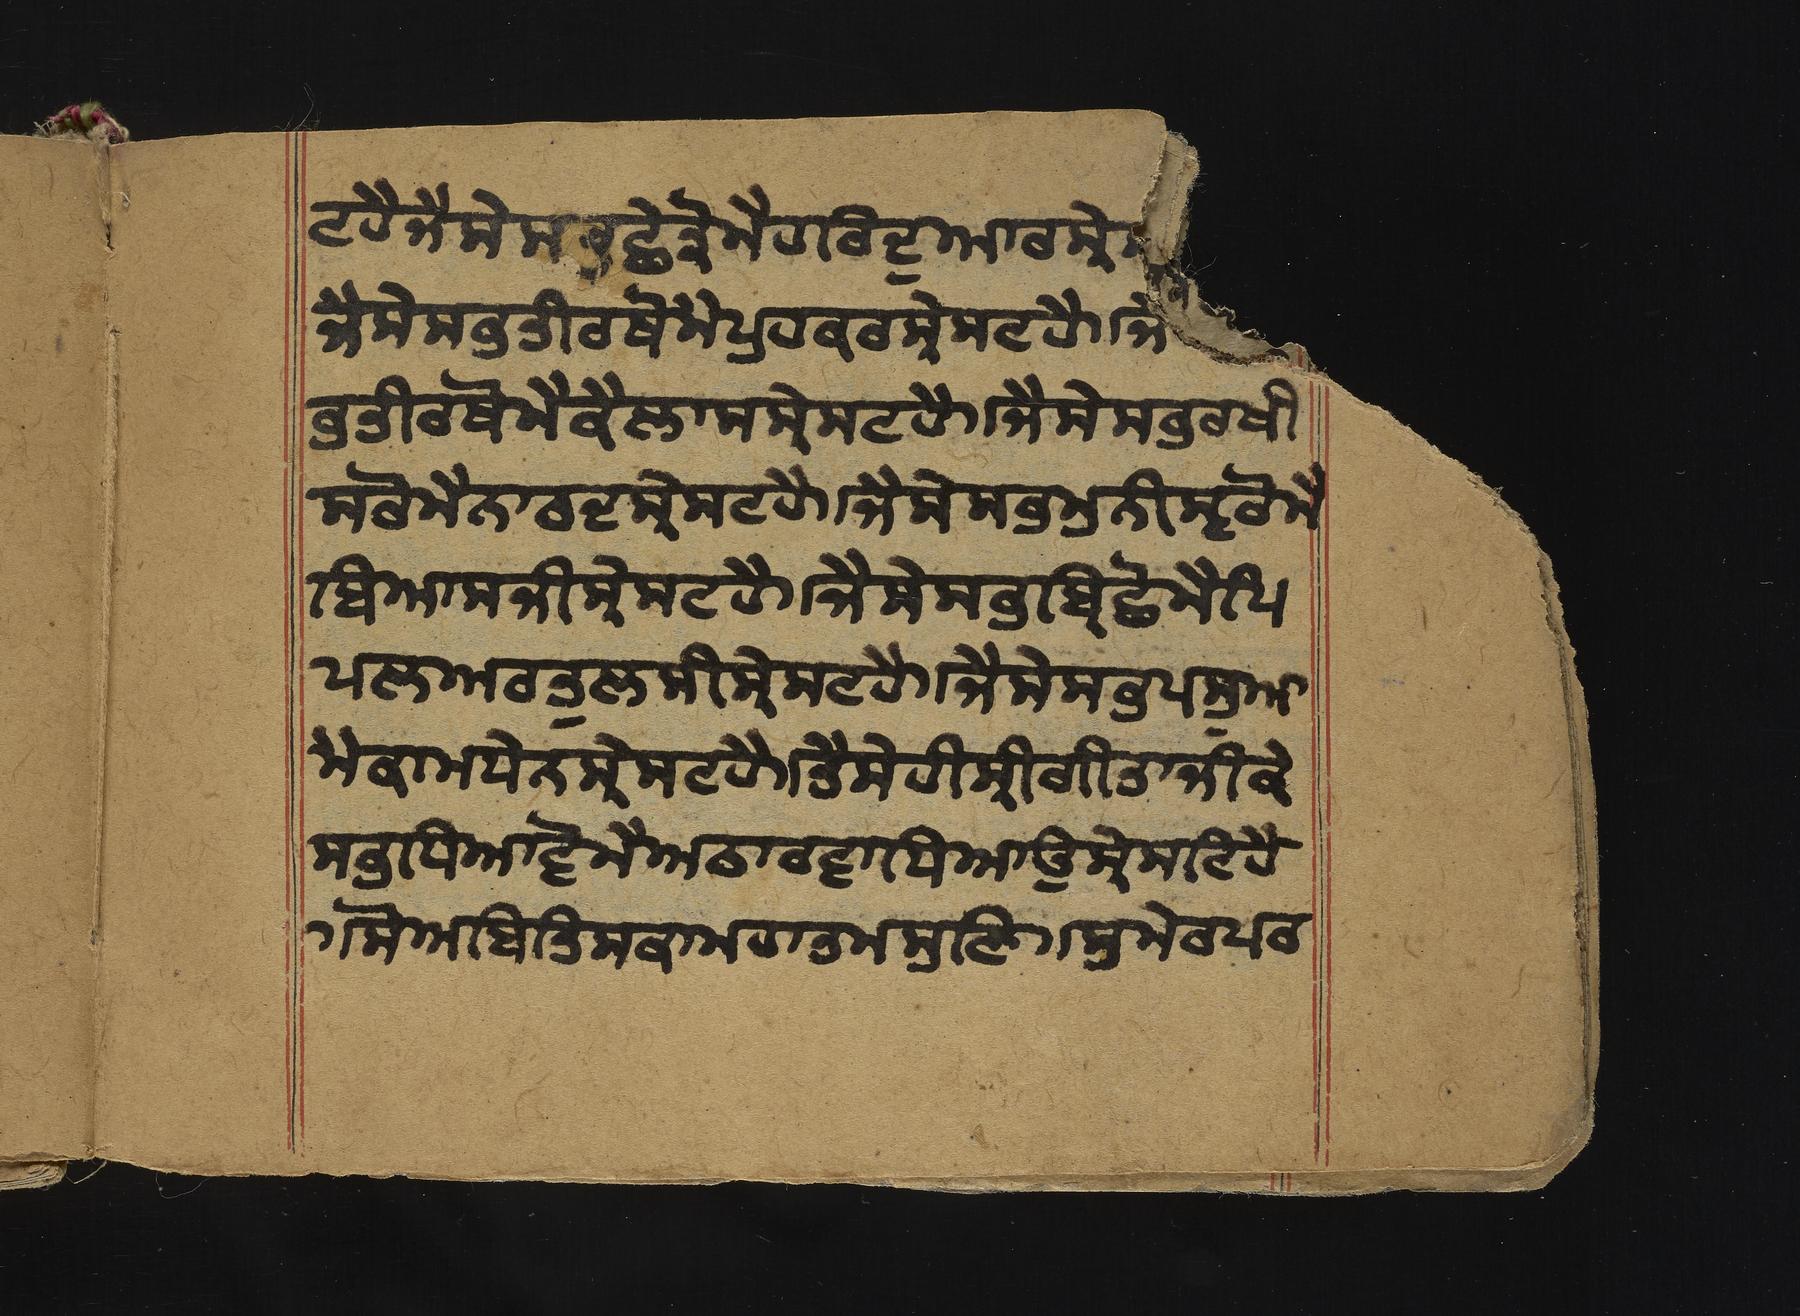 ਟਹੈਜੈਸੇਸਰਬਛੇਤ੍ਰੋਮੈਹਰਿਦੁਆਰਸ੍ਰੇ
ਜੈਸੇਸਭਤੀਰਥੋਮੈਪੁਹਕਰਸ੍ਰੇਸਟਹੈ।ਜੈ
ਭਤੀਰਥੋਮੈਕੈਲਾਸਸ੍ਰੇਸਟਹੈ।ਜੈਸੇਸਭਰਖੀ
ਸਰੋਮੈਨਾਰਦਸ੍ਰੇਸਟਹੈ।ਜੈਸੇਸਭਮੁਨੀਸ੍ਵਰੋਮੈ
ਬਿਆਸਜੀਸ੍ਰੇਸਟਹੈ।ਜੈਸੇਸਭਬ੍ਰਿਛੋਮੈਪਿ
ਪਲਅਰਤੁਲਸੀਸ੍ਰੇਸਟਹੈ।ਜੈਸੇਸਭਪਸੁਆ
ਮੈਕਾਮਧੇਨਸ੍ਰੇਸਟਹੈ।ਤੈਸੇਹੀਸ੍ਰੀਗੀਤਾਜੀਕੇ
ਸਭਧਿਆਵੋਮੈਅਠਾਰਵਾਧਿਆਉਸ੍ਰੇਸਟਿਹੈ
।ਸੋਅਬਿਤਿਸਕਾਮਹਾਤਮਸੁਣਿ।ਸੁਮੇਰਪਰ